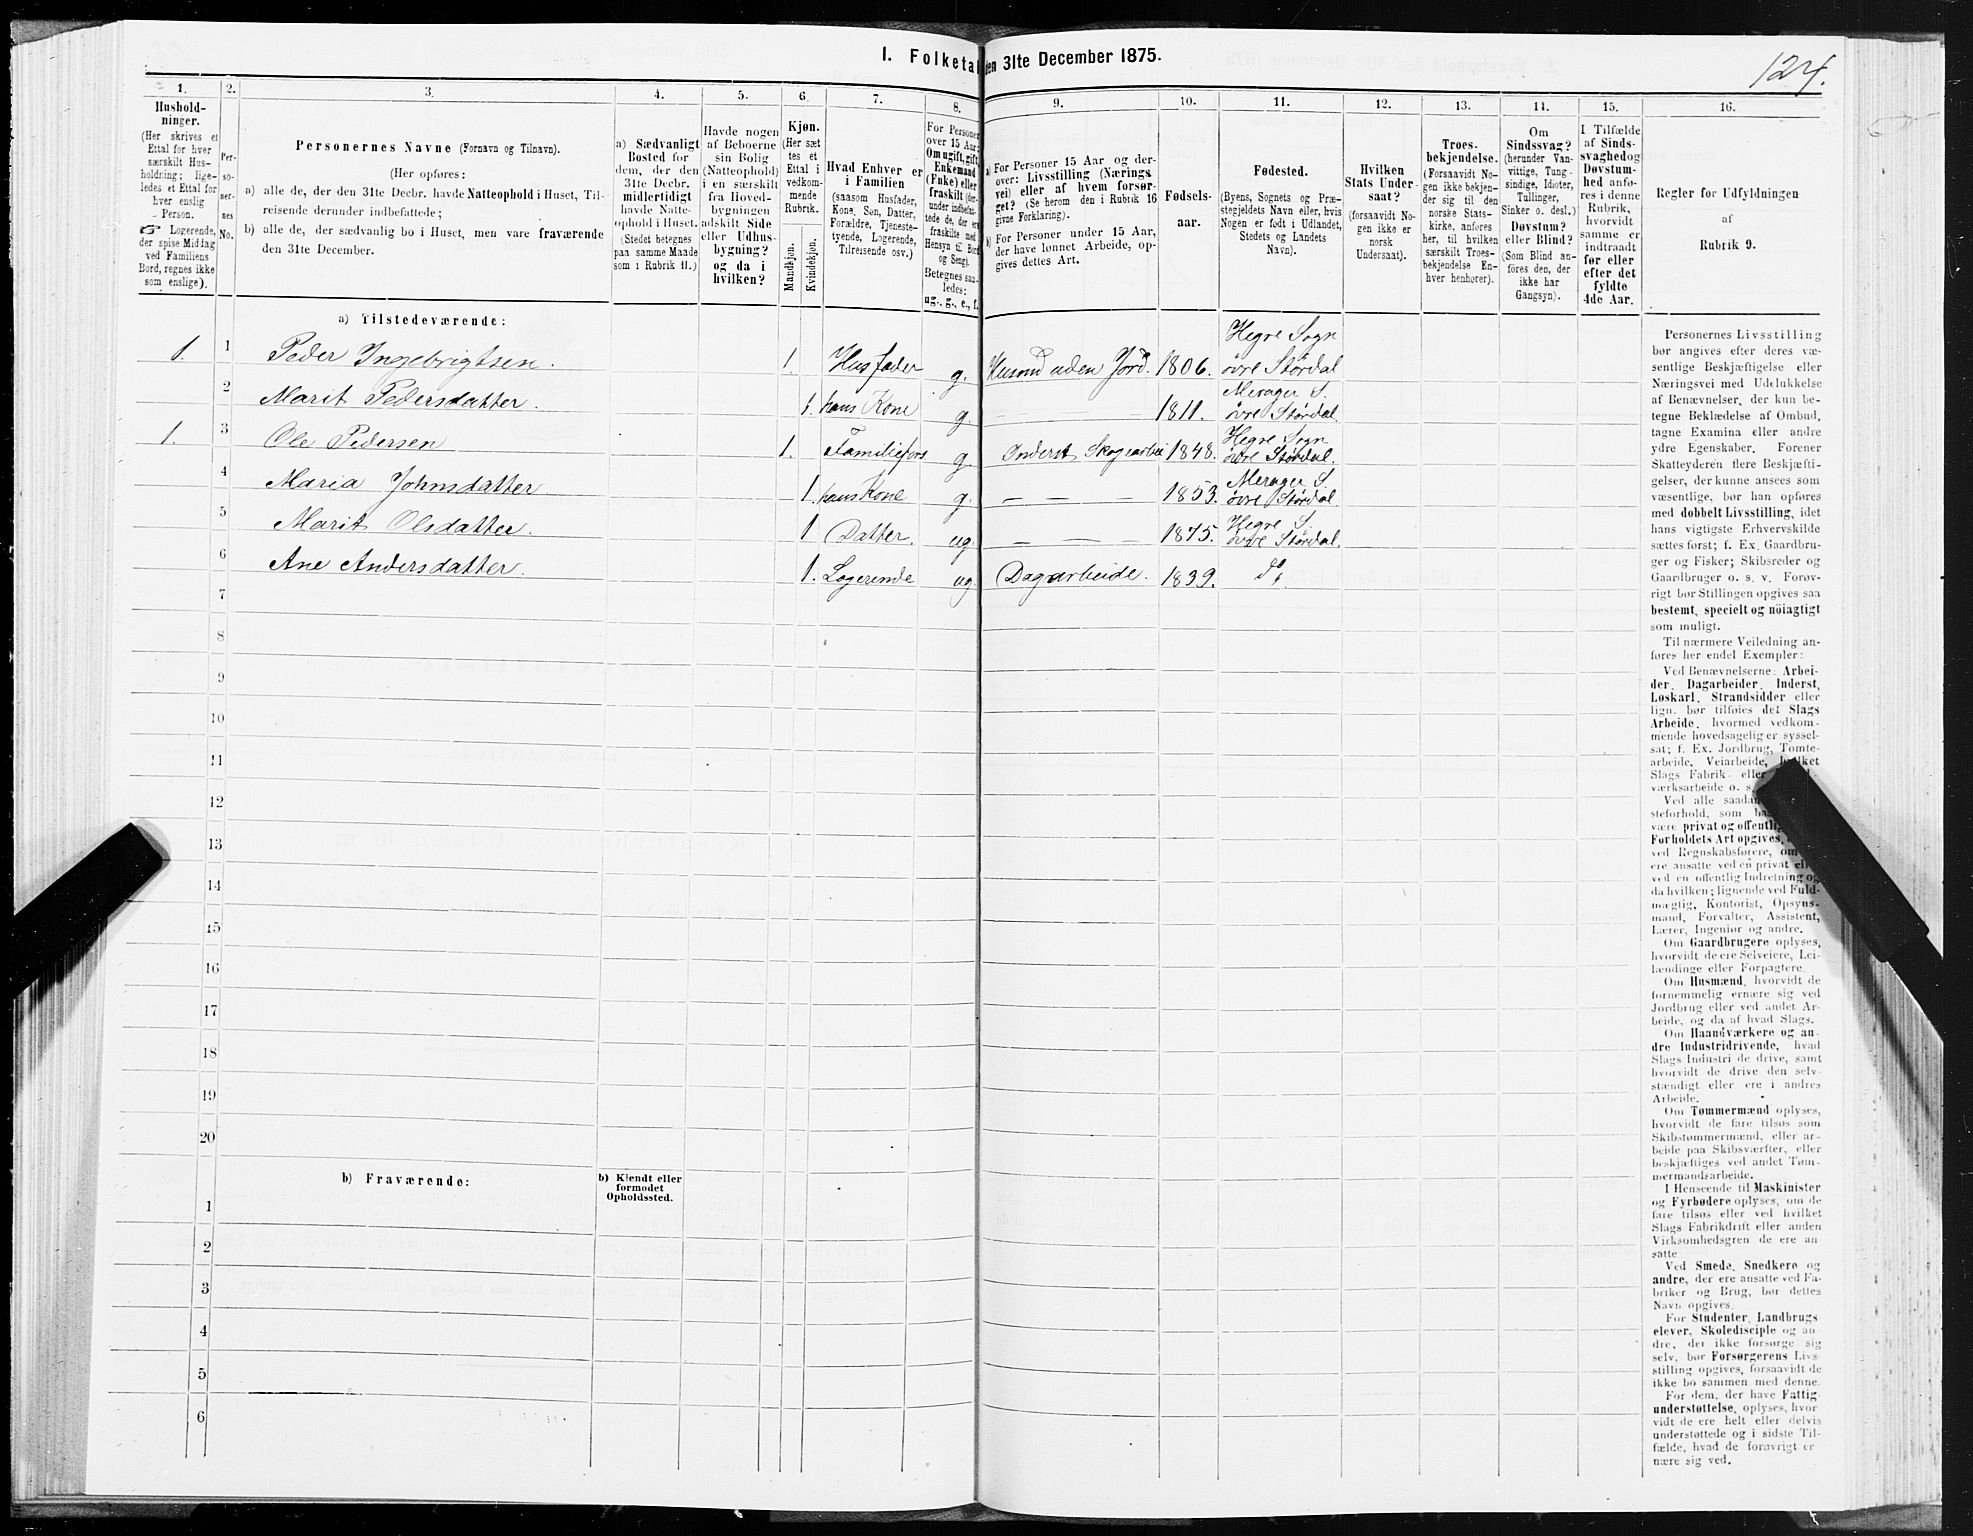 124.
I. Folketal
den 31te December 1875.
1.
Hushold-
ninger.
(Her skrives et
Ettal for hver
særskilt Hus-
holdning; lige-
ledes et Ettal for
hver enslig
Person.
☞ Logerende,
der spise Middag
ved Familiens
Bord, regnes ikke
som enslige).
2.
Per-
so-
ner-
nes
No.
3.
Personernes Navne (Fornavn og Tilnavn).
(Her opføres:
a) alle de, der den 31te Decbr. havde Natteophold i Huset, Til-
reisende derunder indbefattede;
b) alle de, der sædvanlig bo i Huset, men vare fraværende
den 31te December.
4.
a) Sædvanligt
Bosted for
dem, der den
31te Decbr.
midlertidigt
havde Natte-
ophold i Huset.
(Stedet betegnes
paa samme Maade
som i Rubrik 11.)
5.
Havde nogen
af Beboerne
sin Bolig
(Natteophold)
i en særskilt
fra Hoved-
bygningen
adskilt Side
eller Udhus-
bygning?
og da i
hvilken?
6.
Kjøn.
(Her sæt
tes et
Ettal i
vedkom-
mende
Rubrik.
Mandkjøn.
Kvindekjøn.
7.
Hvad Enhver er
i Familien
(saasom Husfader,
Kone, Søn, Datter,
Forældre, Tjeneste-
tyende, Logerende,
Tilreisende osv.)
8.
For Personer
over 15 Aar:
Om ugift, gift,
Enkemand
(Enke) eller
fraskilt (der-
under indbefat-
tede de, der ere
fraskilte med
Hensyn til Bord
og Seng).
Betegnes saa-
ledes:
ug., g., e., f.
9.
a) For Personer 15 Aar og der-
over: Livsstilling (Nærings
vei) eller af hvem forsør-
get? (Se herom den i Rubrik 16
givne Forklaring).
b) For Personer under 15 Aar,
der have lønnet Arbeide, op-
gives dettes Art.
10.
Fødsels-
aar.
11.
Fødested.
(Byens, Sognets og Præ-
stegjeldets Navn eller, hvis
Nogen er født i Udlandet,
Stedets og Landets
Navn).
12.
Hvilken
Stats Under-
saat?
(forsaavidt No-
gen ikke er
norsk
Undersaat).
13.
Troes-
bekjendelse.
(Forsaavidt No-
gen ikke bekjen-
der sig til den
norske Stats-
kirke, anføres
her, til hvilken
særskilt Troes-
bekjendelse En-
hver henhører).
14.
Om
Sindssvag?
(herunder Van-
vittige, Tung-
sindige, Idioter,
Tullinger,
Sinker o. desl.)
Døvstum?
eller Blind?
(Som Blind an-
føres den, der
ikke har
Gangsyn).
15.
I Tilfælde
af Sinds-
svaghed og
Døvstum-
hed anfø-
res i denne
Rubrik,
hvorvidt
samme er
indtraadt
før eller
efter det
fyldte
4de Aar.
16.
Regler for Udfyldningen
af
Rubrik 9.
a) Tilstedeværende:
1. 1 Peder Ingebrigtsen. 1. Husfader g. Husmd uden Jord. 1806. Hegre Sogn øvre Stördal
2 Marit Pedersdatter. 1. hans Kone g. — — 1811. Merager S. øvre Stördal.
1. 3 Ole Pedersen 1. Familiefors g. Inderst Skogarbei 1848. Hegre Sogn øvre Stördal.
4 Maria Johnsdatter 1 hans Kone g. — — — 1853. Merager S. øvre Stördal.
5 Marit Olsdatter. 1 Datter. ug. — — — 1875. Hegre S. øvre Stördal.
6 Ane Andersdatter. 1. Logerende ug Dagarbeide. 1839. do.
7
8
9
10
11
12
13
14
15
16
17
18
19
20
b) Fraværende:
b) Kjendt eller
formodet
Opholdssted.
1
2
3
4
5
6
Personernes Livsstilling
bør angives efter deres væ-
sentlige Beskjæftigelse eller
Næringsvei med Udelukkelse
af Benævnelser, der kun be-
tegne Beklædelse af Ombud,
tagne Examina eller andre
ydre Egenskaber. Forener
Skatteyderen flere Beskjæfti-
gelser, der kunne ansees som
væsentlige, bør han opføres
med dobbelt Livsstilling, idet
hans vigtigste Erhvervskilde
sættes først; f. Ex. Gaardbru-
ger og Fisker; Skibsreder og
Gaardbruger o. s. v. Forøv-
rigt bør Stillingen opgives saa
bestemt, specielt og nöiagtigt
som muligt.
Til nærmere Veiledning an-
føres her endel Exempler:
Ved Benævnelserne: Arbei-
der, Dagarbeider, Inderst,
Løskarl, Strandsidder eller
lign. bør tilføies det Slags
Arbeide, hvormed vedkom-
mende hovedsagelig er syssel-
sat; f. Ex. Jordbrug, Tomte-
arbeide, Veiarbeide,
Slags Fabrik- eller
værksarbeide o. s.
Ved alle
steforhold, som
være privat og offentlig
Forholdets Art opgives,
ved Regnskabsførere,
ere ansatte ved en privat
ved en offentlig Indretning og
da hvilken; lignende ved Fuld-
mægtig, Kontorist, Opsyns-
mand, Forvalter, Assistent,
Lærer, Ingeniør og andre.
Om Gaardbrugere oplyses,
hvorvidt de ere Selveiere, Lei-
lændinge eller Forpagtere.
Om Husmænd, hvorvidt de
fornemmelig ernære sig ved
Jordbrug eller ved andet Ar-
beide, og da af hvad Slags.
Om Haandværkere og an-
dre Industridrivende, hvad
Slags Industri de drive, samt
hvorvidt de drive den selv-
stændigt eller ere i andres
Arbeide.
Om Tømmermænd oplyses,
hvorvidt de fare tilsøs som
Skibstømmermænd, eller ar-
beide paa Skibsværfter, eller
beskjæftiges ved andet Tøm-
mermandsarbeide.
I Henseende til Maskinister
og Fyrbødere oplyses, om de
fare tilsøs eller ved hvilket
Slags Fabrikdrift eller anden
Virksomhedsgren de ere an-
satte
Ved Smede, Snedkere og
andre, der ere ansatte ved Fa-
briker og Brug, bør dettes
Navn opgives.
For Studenter, Landbrugs
elever, Skoledisciple og an-
dre, der ikke forsørge sig
selv, bør Forsørgerens Livs-
stilling opgives, forsaavidt de
ikke bo sammen med denne.
For dem, der have Fattig-
understøttelse, oplyses, hvor
vidt de ere helt eller delvis
understøttede og i sidste Til-
fælde, hvad de forøvrigt er
nære sig ved.